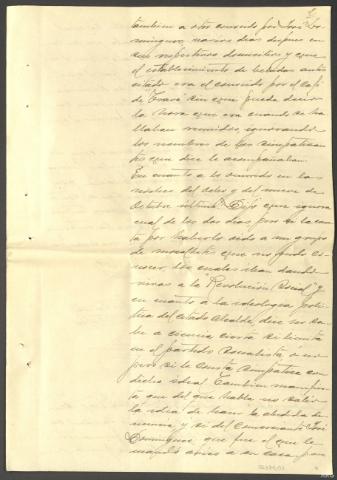 tambien a otro conocido por José Do-
minguez, varios dias despues en
sus respectivos domicilios y que
el establecimiento de bebidas antes
citado era el conocido por el Café
de "Bravo" sin que pueda decir
la hora que era cuando se ha-
llaban reunidos ignorando
los nombres de los simpatizan-
tes que dice le acompañaban.
En cuanto a lo ocurrido en las
noches del ocho y del nueve de
Octubre último. Dijo que ignora
cual de los dos dias fue
por haberlo oido a un grupo
de que no pudo co-
nocer, los cuales iban dando
vivas a la "Revolución Social" y
en cuanto a la ideologia poli-
tica del citado Alcalde, dice no sa-
be a ciencia cierta si
en el partido Socialista o no
pero si le consta simpatiza con
dicho ideal. Tambien manifies-
ta que del que habla no salió
la idea de hacer la
y si del José
Dominguez que fue el que le
mandó aviso a su casa para